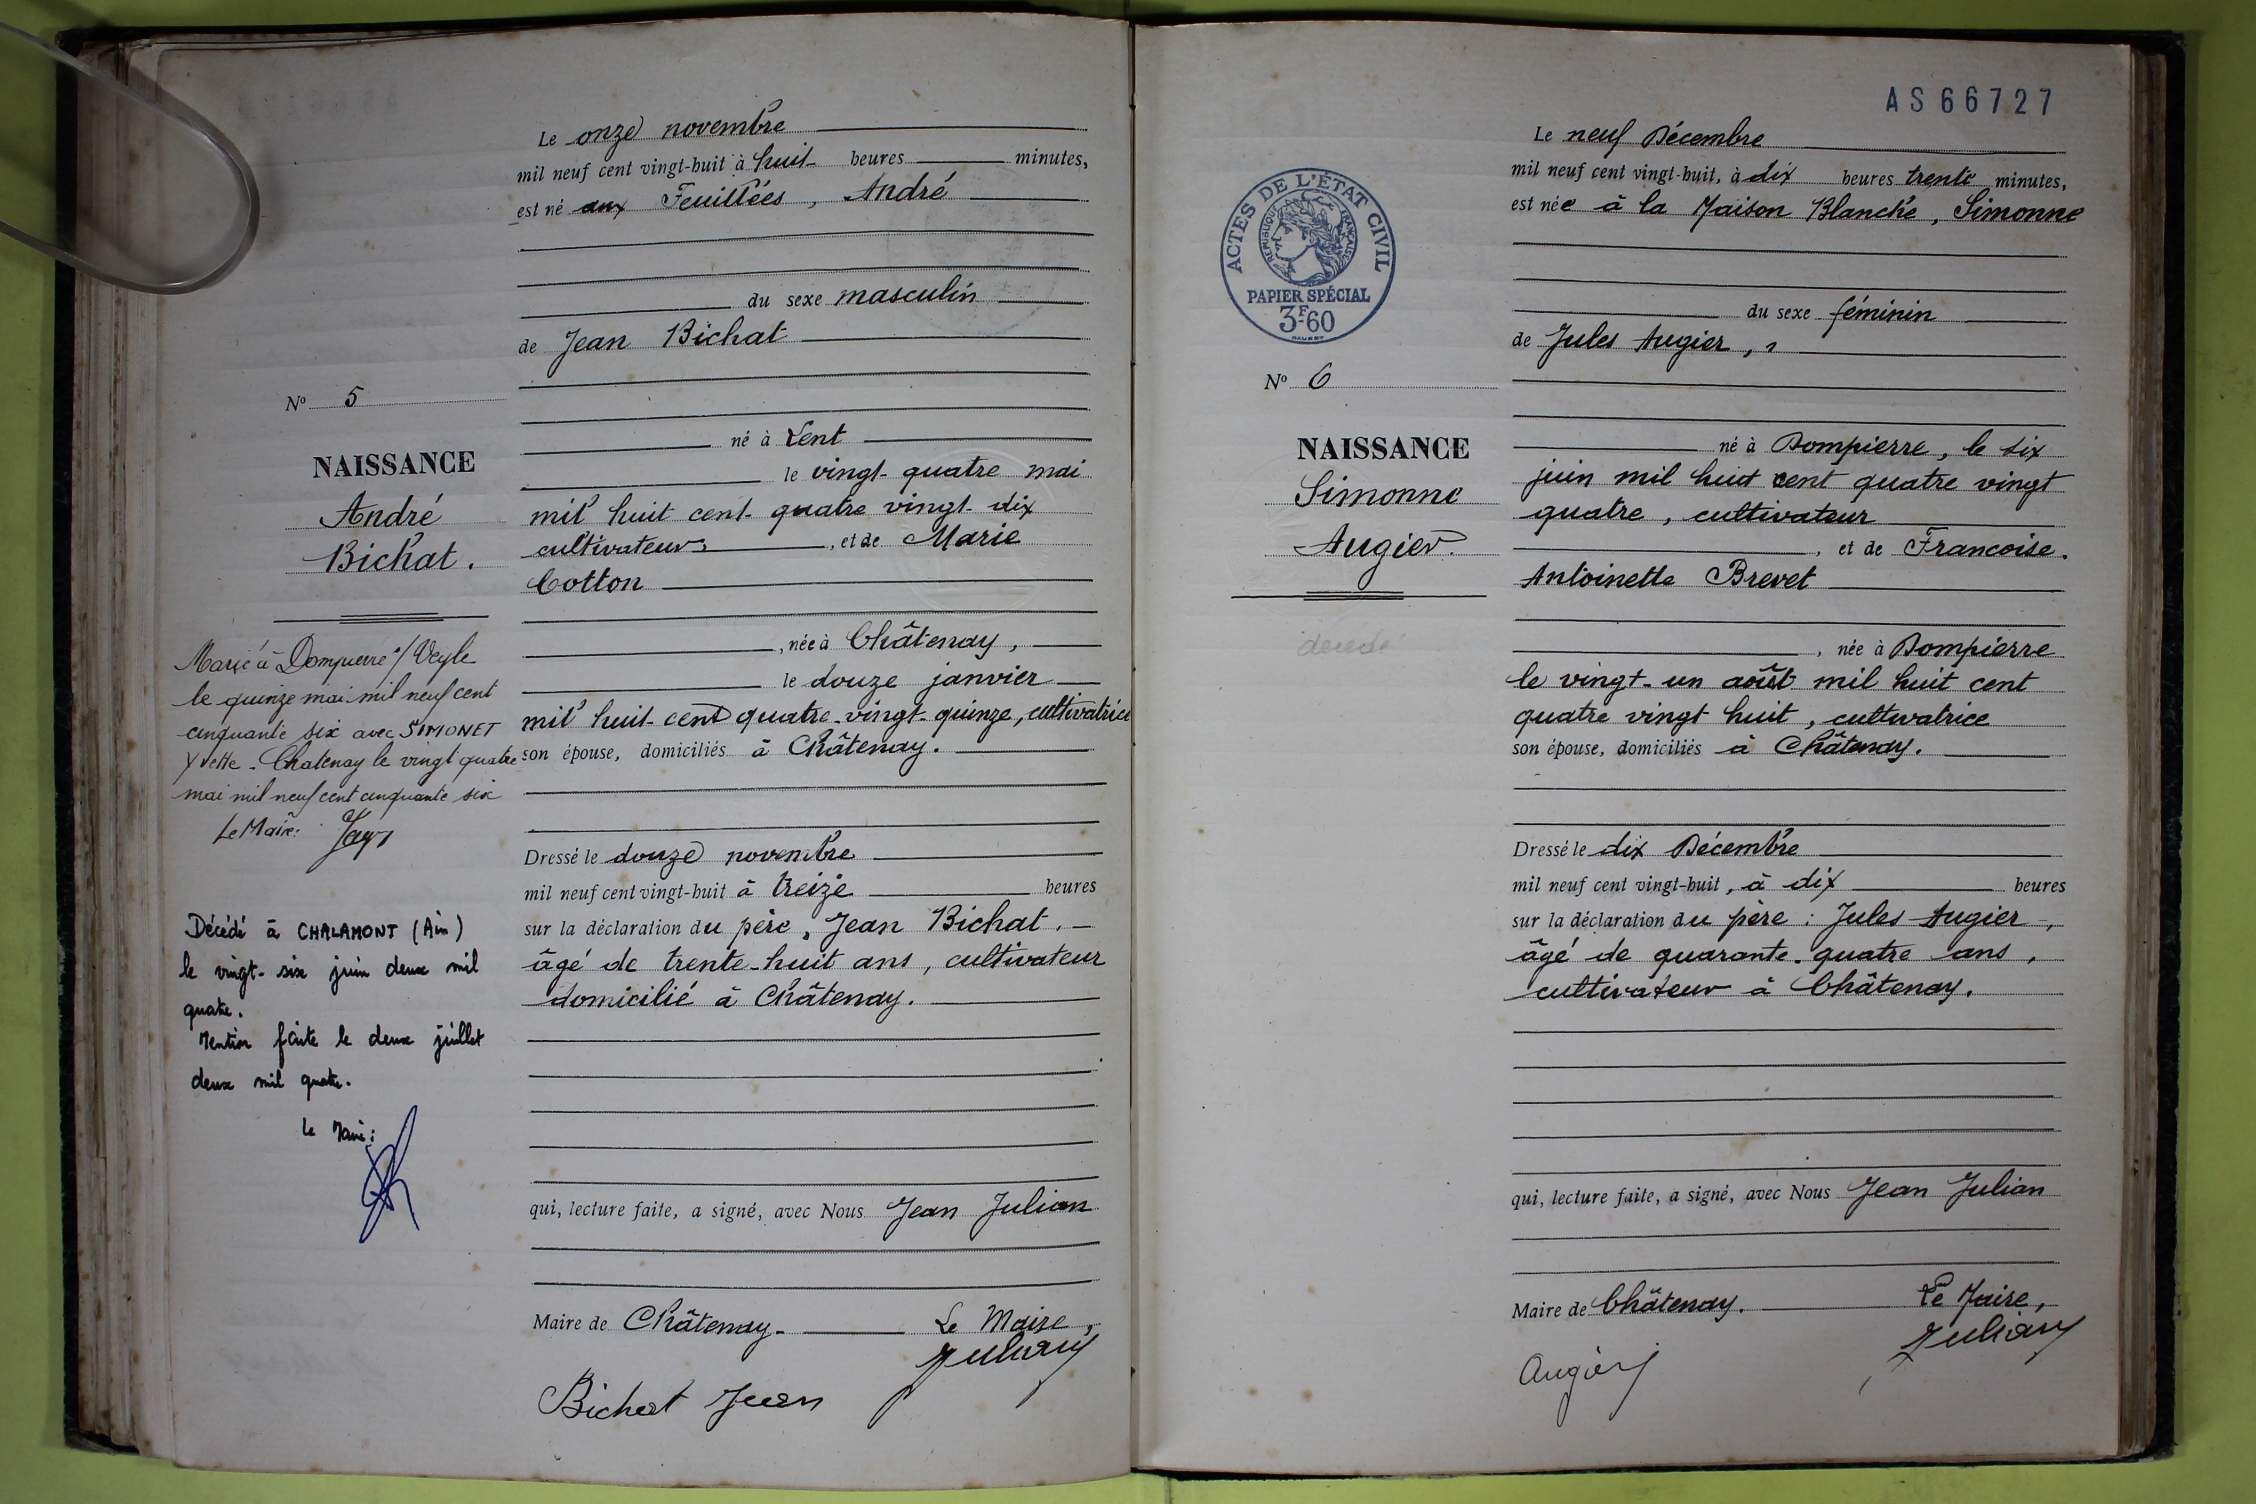 Le onze novembre
mil neuf cent vingt-huit à huit heures minutes,
est né aux Feuillées, André
du sexe masculin
de Jean Bichat
No 5
né à Lent
NAISSANCE
le vingt-quatre mai
André
mil huit cent quatre vingt-dix
Bichat.
cultivateur, , et de Marie
Cotton
, née à Châtenay,
le douze janvier
mil huit cent quatre-vingt-quinze, cultivatrice
son épouse, domiciliés à Châtenay.
Marié à Dompierre s/ Veyle
le quinze mai mil neuf cent
cinquante six avec SIMONET
Yvette. Chatenay le vingt quatre
mai mil neuf cent cinquante six
Le Maire:
Dressé le douze novembre
mil neuf cent vingt-huit à treize heures
sur la déclaration du père, Jean Bichat.
âgé de trente-huit ans, cultivateur
domicilié à Châtenay.
Décédé à CHALAMONT (Ain)
le vingt-six juin deux mil
quatre.
Mention faite le deux juillet
deux mil quatre.
Le Maire:
qui, lecture faite, a signé, avec Nous Jean Julian
Maire de Châtenay. Le Maire,
Julian
Bichat Jean
AS66727
Le neuf Décembre
mil neuf cent vingt-huit, à dix heures trente minutes,
est née à la Maison Blanche, Simonne
ACTES DE L'ÉTAT CIVIL
RÉPUBLIQUE FRANÇAISE
PAPIER SPÉCIAL
3F60
du sexe féminin
de Jules Augier,
No 6
NAISSANCE
Simonne
Augier.
décédé
né à Dompierre, le six
juin mil huit cent quatre vingt
quatre, cultivateur
, et de Françoise.
Antoinette Brevet
, née à Dompierre
le vingt-un août mil huit cent
quatre vingt huit, cultivatrice
son épouse, domiciliés à Châtenay.
Dressé le dix Décembre
mil neuf cent vingt-huit, à dix heures
sur la déclaration du père : Jules Augier,
âgé de quarante-quatre ans,
cultivateur à Châtenay.
qui, lecture faite, a signé, avec Nous Jean Julian
Maire de Châtenay. Le Maire,
Julian
Augier